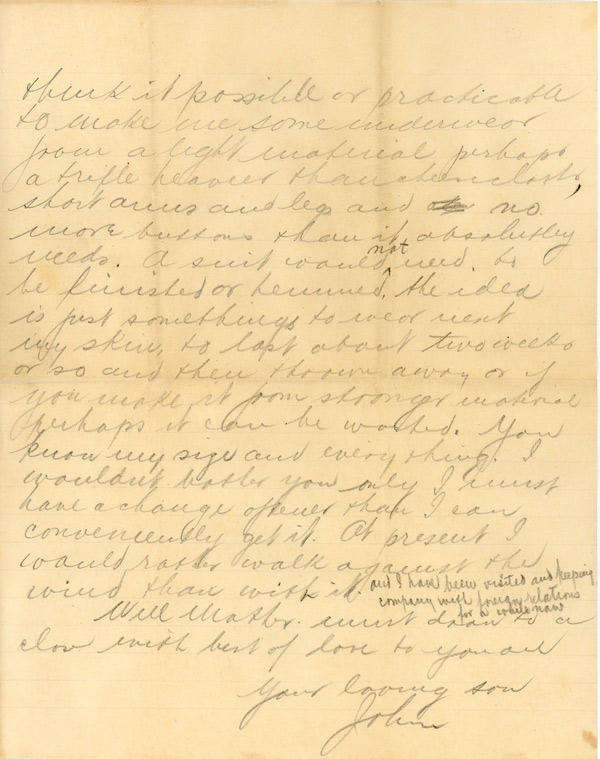 think it possible or practicable
to make me some underwear
from a light material perhaps
a trifle heavier than cheesecloth,
short arms and legs and no
more buttons than it absolutley
needs. A suit would not need to
be finished or hemmed, the idea
is just somethings to wear next
my skin, to last about two weeks
or so and then thrown away or if
you make it from stronger material
perhaps it can be washed. You
know my size and everything. I
wouldn't bother you only I must
have a change oftener than I can
conveniently get it. At present I
would rather walk against the
wind than with it. and I have been visited and keeping
company with foreign relations
for a while now
Well Mother must draw to a
close with best of love to you all
Your loving son
John